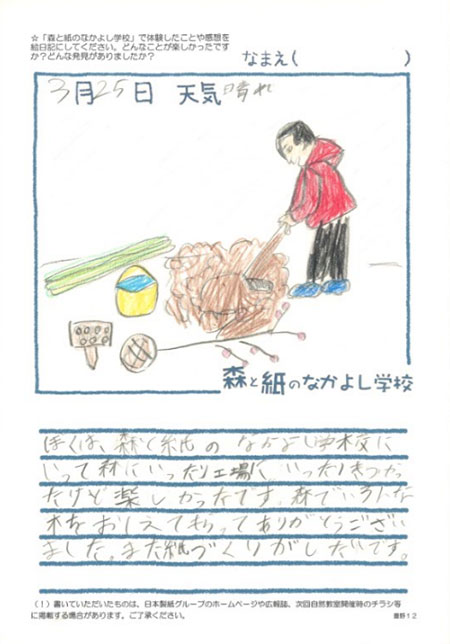 ☆「森と紙のなかよし学校」で体験したことや感想を
絵日記にしてください。どんなことが楽しかったです
か?どんな発見がありましたか?
なまえ( )
3月25日 天気 晴れ
森と紙のなかよし学校
ぼくは、森と紙のなかよし学校に
いって森にいったり工場にいったりきつかっ
たけど楽しかったです。森でいろんな
木をおしえてもらってありがとうござい
ました。また紙づくりがしたいです。
(!)書いていただいたものは、日本製紙グループのホームページや広報誌、次回自然教室開催時のチラシ等
に掲載する場合があります。ご了承ください。
菅野12